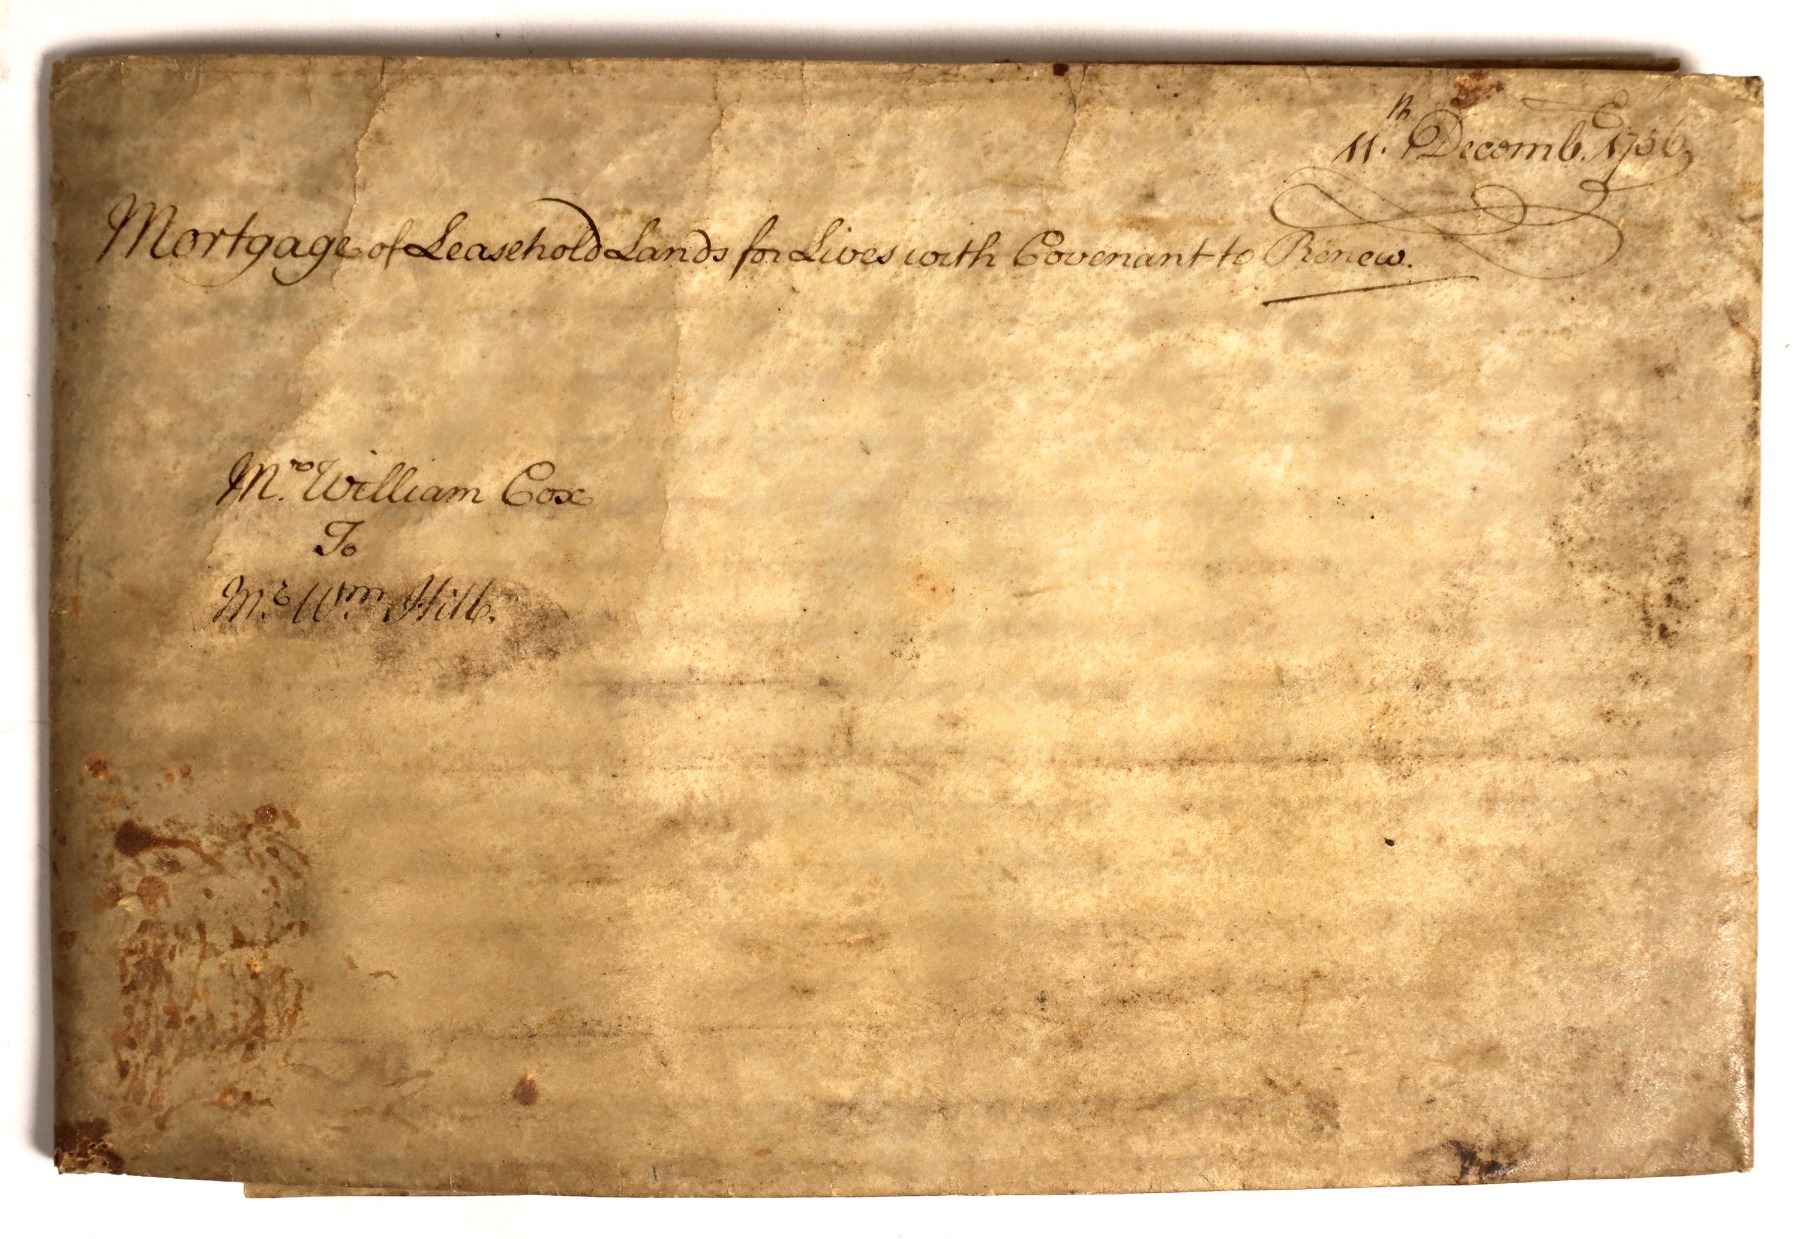 11th Decemb.r 1756
Mortgage of Leasehold Lands for Lives with Covenant to Renew.
Mr. William Cox
To
Mr. Wm. Hill.